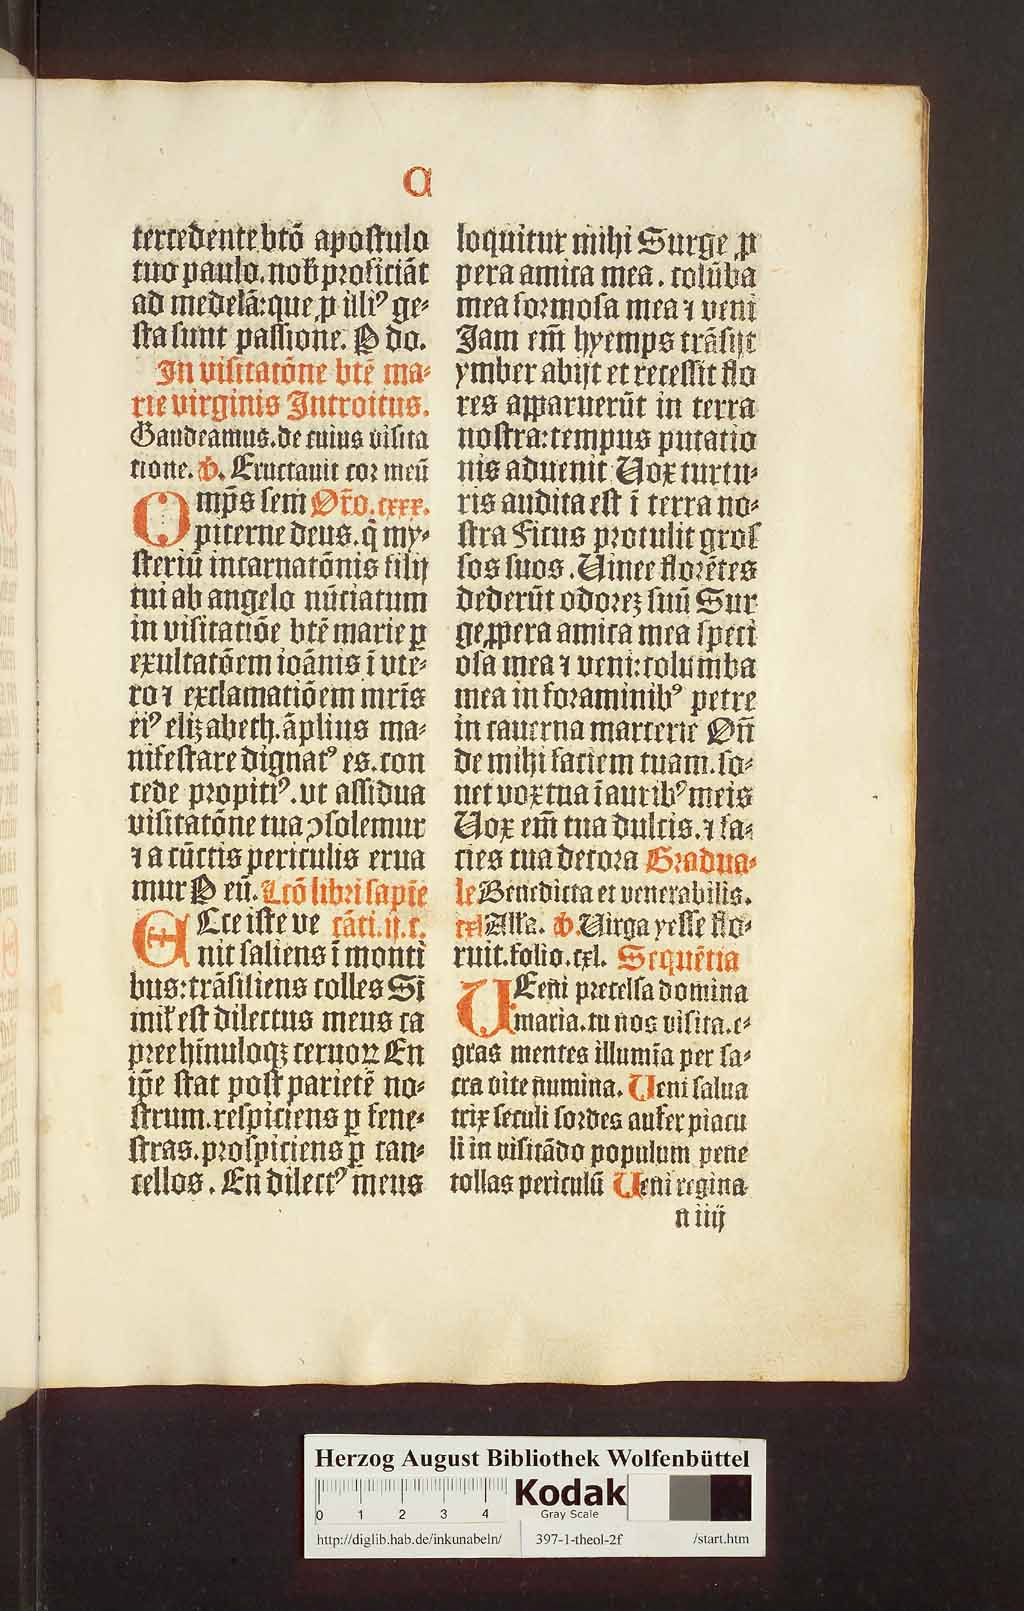 C
tercedente btō apostulo
tuo paulo. nob̄ proficiāt
ad medelā: que ꝑ illiꝰ ge⸗
sta sunt passione. P do.
In visitatōne btē ma⸗
rie virginis Introitus.
Gaudeamus. de cuius visita
tione. v̄. Eructauit cor meū
Omp̄s sem Or̄o. cxxx.
piterne deus. q̄ my⸗
steriū incarnatōnis filij
tui ab angelo nūciatum
in visitatiōe btē marie ꝑ
exultatōem ioānis ī vte⸗
ro ⁊ exclamatiōem mr̄is
eiꝰ elizabeth. āplius ma⸗
nifestare dignatꝰ es. con
cede propitiꝰ. vt assidua
visitatōne tua ↄsolemur
⁊ a cūctis periculis erua
mur P eū. Lc̄ō libri sapīe
ECce iste ve cāti. ij. c.
nit saliens ī monti
bus: trāsiliens colles Si
mil̓ est dilectus meus ca
pree hīnuloqꝫ ceruoꝝ En
ip̄e stat post parietē no⸗
strum. respiciens ꝑ fene⸗
stras. prospiciens ꝑ can⸗
cellos. En dilectꝰ meus
loquitur mihi Surge ꝓ
pera amica mea. colūba
mea formosa mea ⁊ veni
Jam em̄ hyemps trāsijt
ymber abijt et recessit flo
res apparuerūt in terra
nostra: tempus putatio
nis aduenit Vox turtu⸗
ris audita est ī terra no⸗
stra Ficus protulit gros
sos suos. Vinee florētes
dederūt odoreꝫ suū Sur
ge ꝓpera amica mea speci
osa mea ⁊ veni: columba
mea in foraminibꝰ petre
in cauerna macerie Oñ
de mihi faciem tuam. so⸗
net vox tua ī auribꝰ meis
Vox em̄ tua dulcis. ⁊ fa⸗
cies tua decora Gradua⸗
le Benedicta et venerabilis.
cxl Alla. v̄. Virga yesse flo⸗
ruit. folio. cxl. Sequētia
VEeni precelsa domina
maria. tu nos visita. e⸗
gras mentes illumīa per sa⸗
cra vite numina. Ueni salua
trix seculi sordes aufer piacu
li in visitādo populum pene
tollas periculū Ueni regina
n iiij
Herzog August Bibliothek Wolfenbüttel
0 1 2 3 4
Kodak
Gray Scale
http://diglib.hab.de/inkunabeln/ 397-1-theol-2f /start.htm